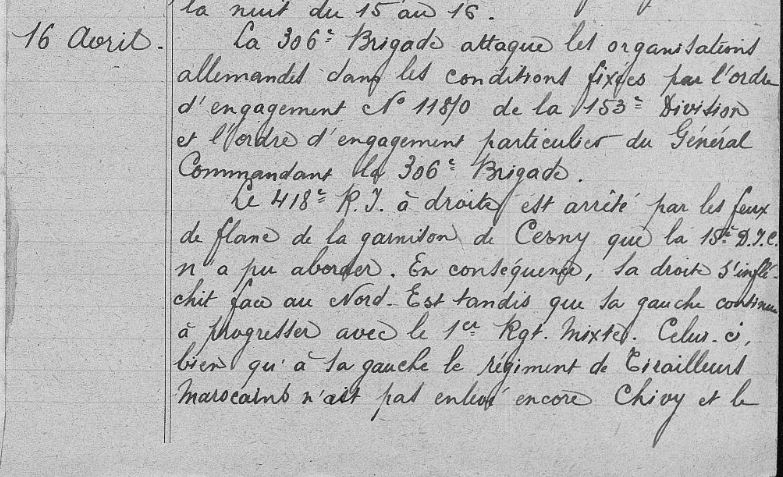 la nuit du 15 au 16.
16 Avril.
La 306e Brigade attaque les organisations
allemandes dans les conditions fixées par l'ordre
d'engagement No 118/0 de la 153e Division
et l'ordre d'engagement particulier du Général
Commandant la 306e Brigade.
Le 418e R.I. à droite est arrêté par les feux
de flanc de la garnison de Cerny que la 15e D.I.C.
n'a pu aborder. En conséquence, sa droite s'inflé-
chit face au Nord-Est tandis que sa gauche continue
à progresser avec le 1er Rgt. Mixte. Celui-ci,
bien qu'à sa gauche le régiment de Tirailleurs
Marocains n'ait pas enlevé encore Chivy et le